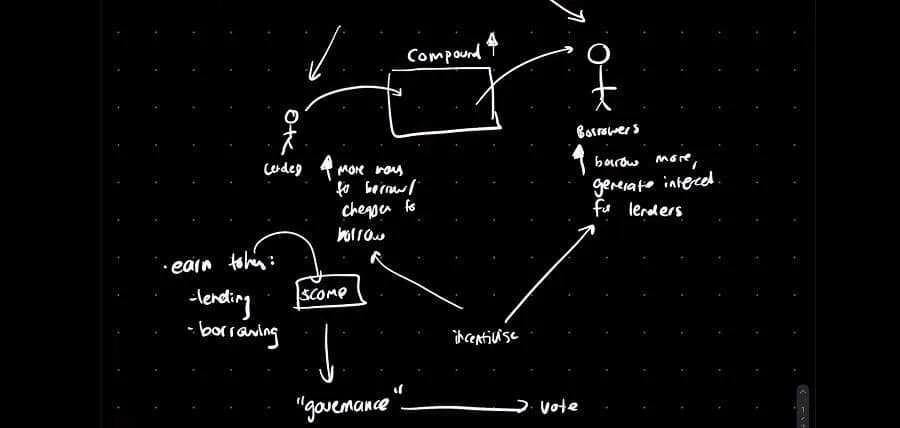 Compound
Borrowers
Lender
more
to borrow/
cheaper to
borrow
borrow more,
generate interest
for lenders
· earn token:
-lending
- borrowing
$COMP
incentivise
"governance"
vote